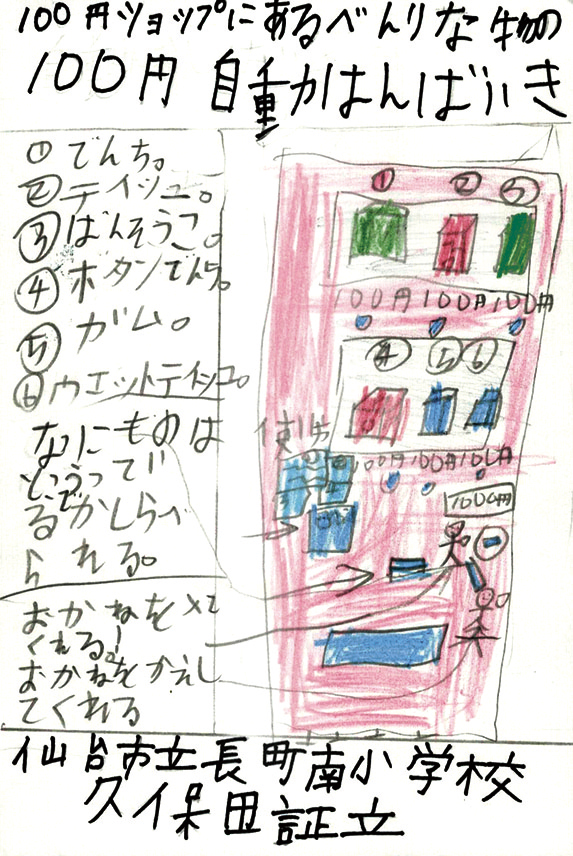 100円ショップにあるべんりな物の
100円 自動はんばいき
①でんち。
②テイシュ。
③ばんそうこ。
④ボタンでんち。
⑤ガム。
⑥ウエットテイシュ。
なにものは
るかしらべ
られる。
おかねを
くれる!
おかねをかえし
てくれる
① ② ③
100円 100円 100円
④ ⑤ ⑥
100円 100円 100円
使方
1000円
仙台市立長町南小学校
久保田証立